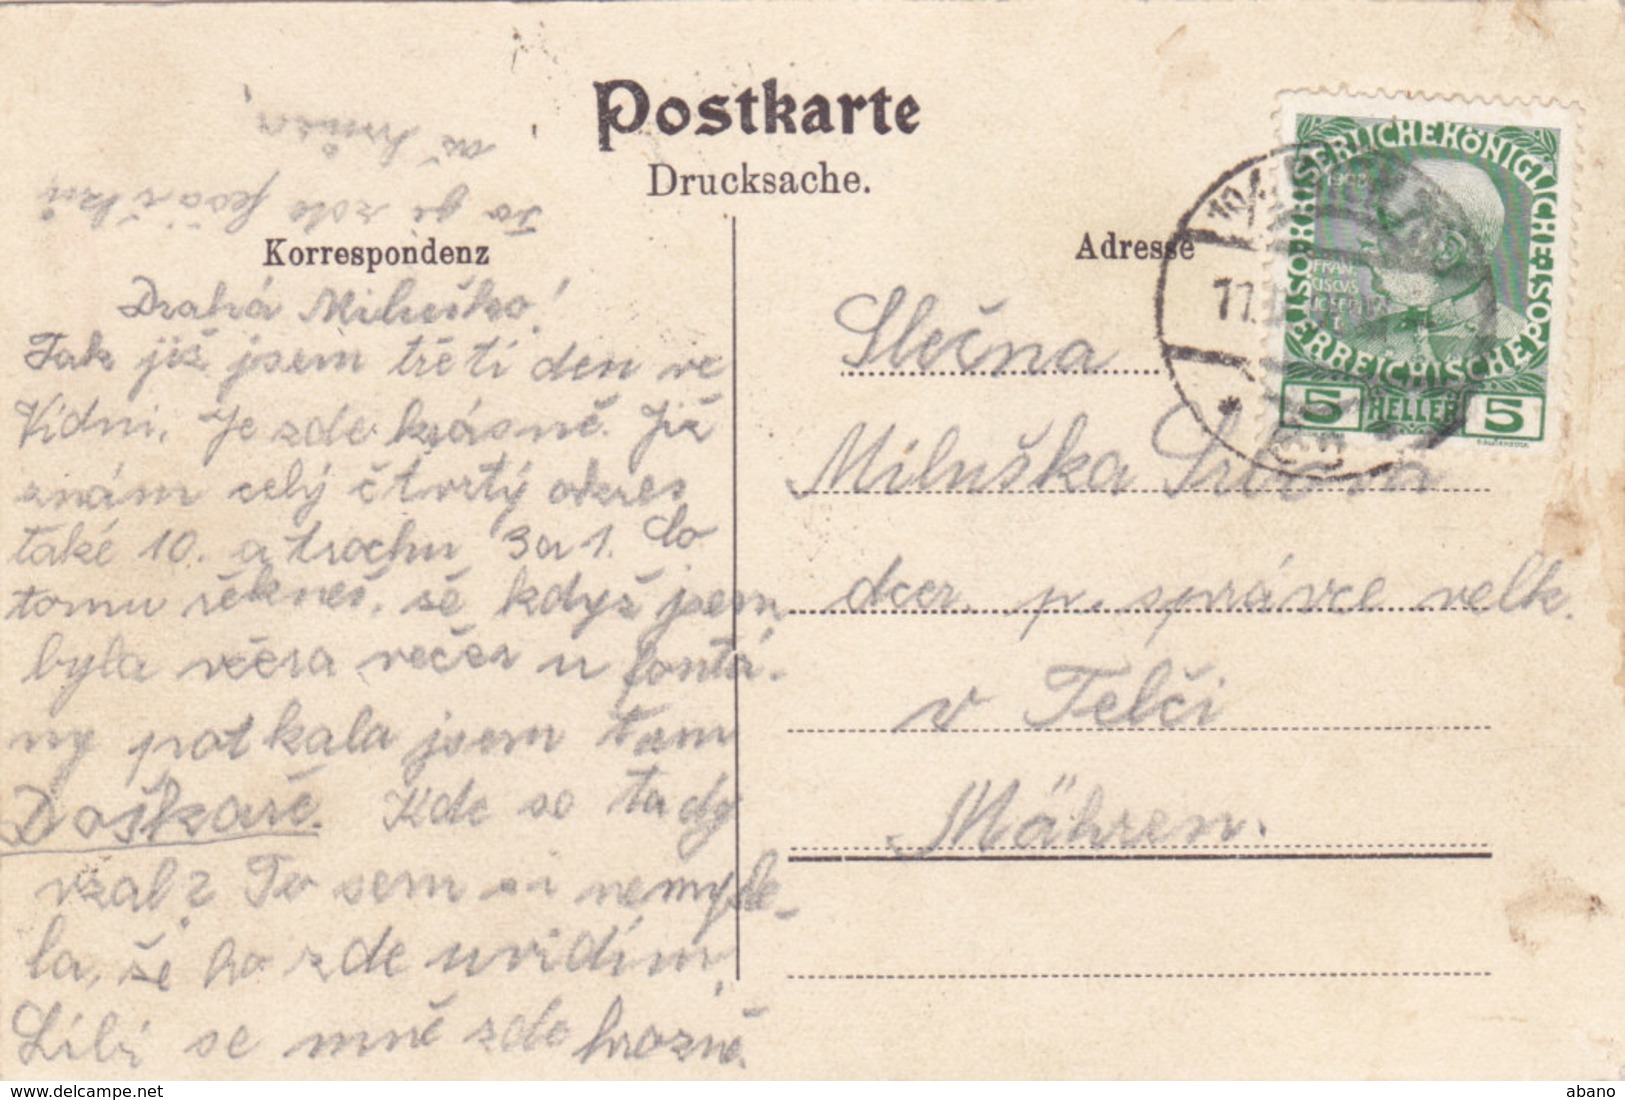 Postkarte
Drucksache.
Korrespondenz
Adresse
Drahá Miluško!
Tak již jsem třetí den ve
Vídni. Je zde krásně. Již
znám celý čtvrtý okres
také 10. a trochu 3 a 1. Co
tomu řekneš, že když jsem
byla včera večer u fontá-
ny potkala jsem tam
Doškaře. Kde se tady
vzal? To sem si nemysle-
la, že ho zde uvidím.
Líbí se mně zde hrozně.
To je zde
Slečna
Miluška
dcer. p. správce velk.
v Telči
Mähren.
KAISERLICHEKÖNIGLICHE
ÖSTERREICHISCHE POST
1908
FRAN
CISCUS
JOSEPHUS
I
5 HELLER 5
abano